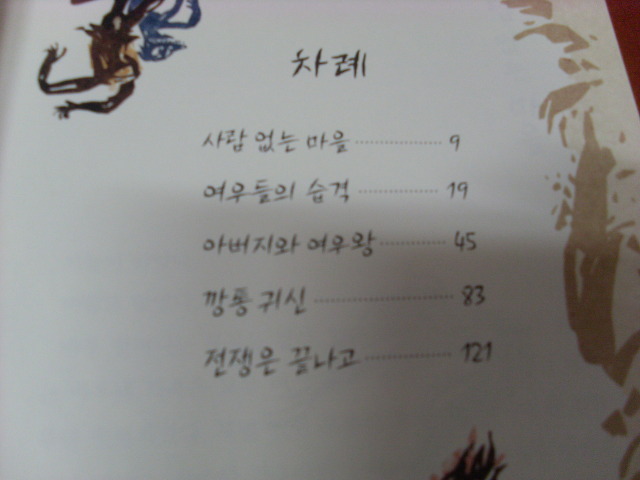 차례
사람 없는 마을 ·············· 9
여우들의 습격 ············· 19
아버지와 여우왕 ··········· 45
깡통 귀신 ······················· 83
전쟁은 끝나고 ·············· 121